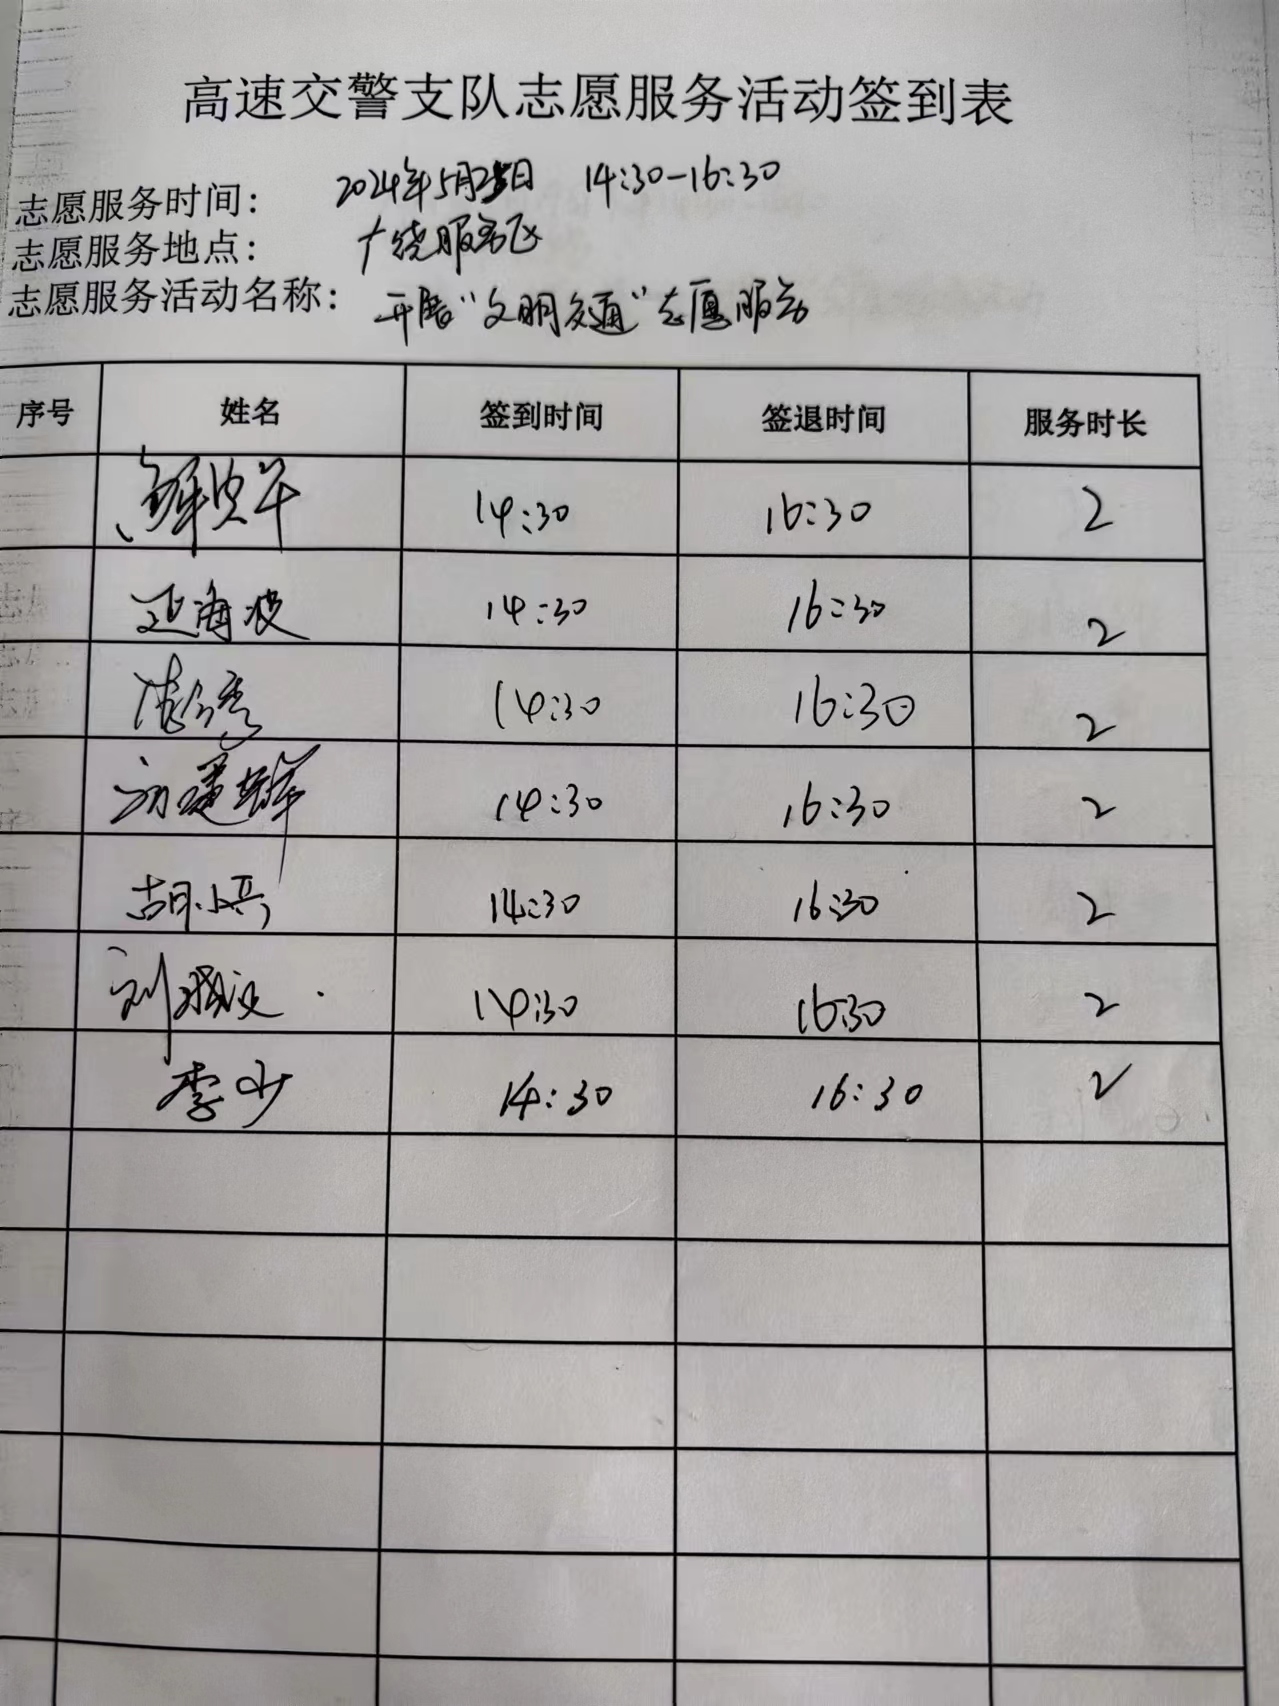 高速交警支队志愿服务活动签到表
志愿服务时间： 2024年5月25日 14:30-16:30
志愿服务地点： 广饶服务区
志愿服务活动名称： 开展“文明交通”志愿服务
序号 姓名 签到时间 签退时间 服务时长
14:30 16:30 2
延海波 14:30 16:30 2
14:30 16:30 2
14:30 16:30 2
胡小兵 14:30 16:30 2
刘 14:30 16:30 2
李少 14:30 16:30 2